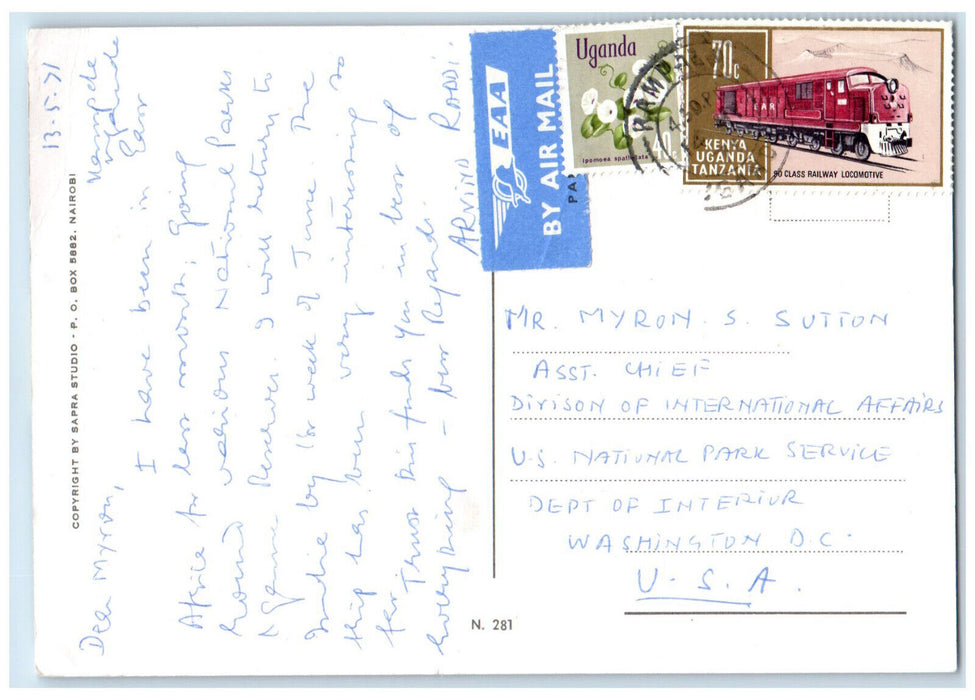 13-5-71
Kampala
Uganda
East
Dear Myron,
I have been in
Africa for last month, going
round various National Parks
& Game Reserves. I will return to
India by 1st week of June. The
trip has been very interesting so
far. Trust this finds you in best of
everything – best Regards.
ARVIND
COPYRIGHT BY SAPRA STUDIO - P. O. BOX 5882. NAIROBI
N. 281
EAA
BY AIR MAIL
PA
Uganda
Ipomoea spathulata
40c
70c
EAR
KENYA
UGANDA
TANZANIA
90 CLASS RAILWAY LOCOMOTIVE
MR. MYRON. S. SUTTON
ASST. CHIEF
DIVISON OF INTERNATIONAL AFFAIRS
U.S. NATIONAL PARK SERVICE
DEPT OF INTERIOR
WASHINGTON D.C.
U.S.A.